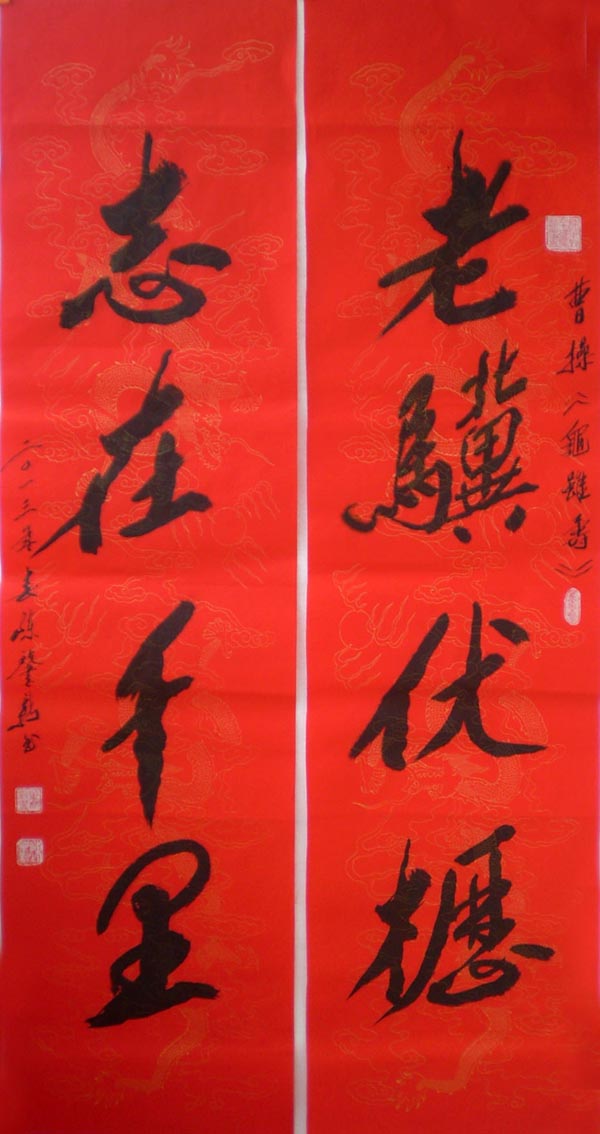 曹操《龜雖壽》
老驥伏櫪
志在千里
二〇一三年